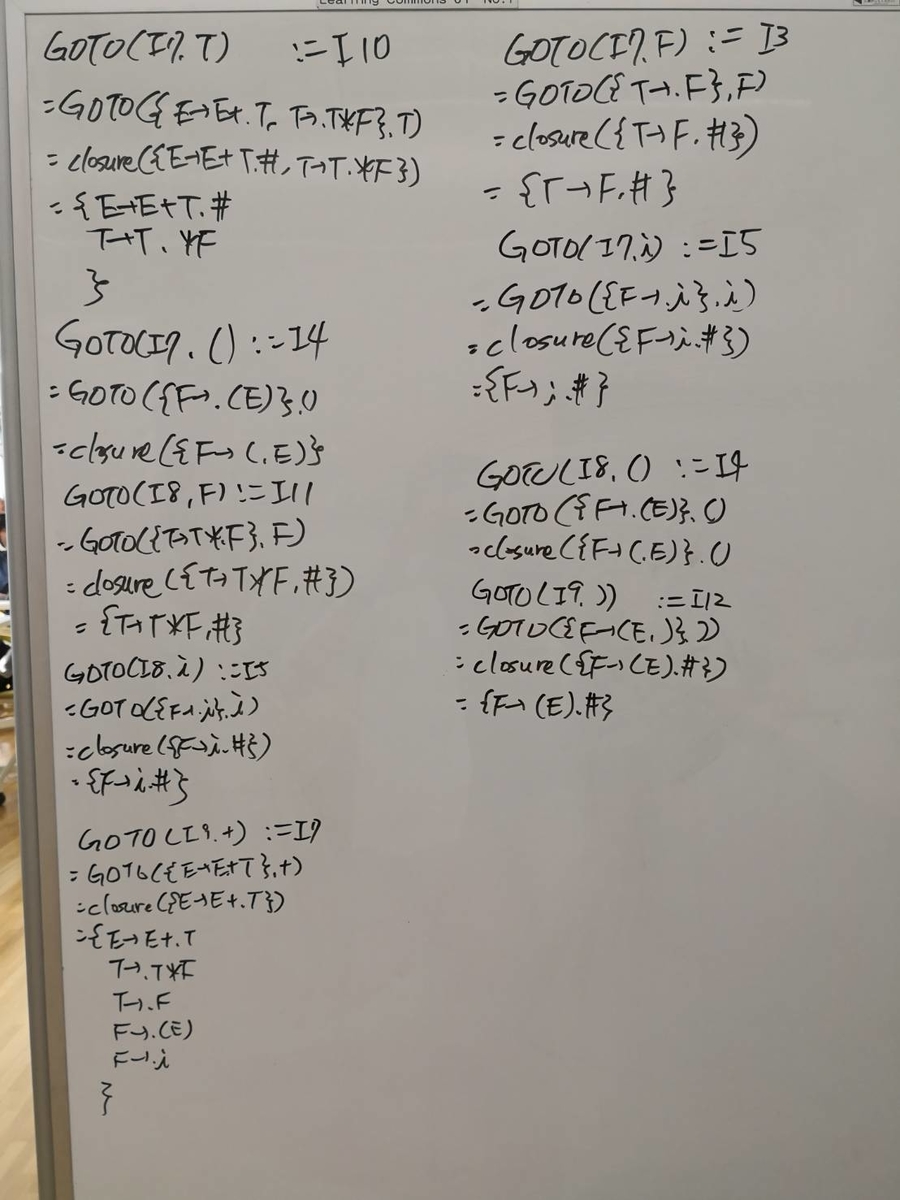 Learning Commons 01 No.1
GOTO(I7.T) :=I10
=GOTO({E→E+.T, T→.T*F}.T)
=closure({E→E+T.#,T→T.*F})
={E→E+T.#
T→T.*F
}
GOTO(I7.() :=I4
=GOTO({F→.(E)}.()
=closure({F→(.E)}
GOTO(I8,F):=I11
=GOTO({T→T*.F}.F)
=closure({T→T*F.#})
={T→T*F.#}
GOTO(I8.i):=I5
=GOTO({F→.i}.i)
=closure({F→i.#})
={F→i.#}
GOTO(I9.+) :=I7
=GOTO({E→E+T}.+)
=closure({E→E+.T})
={E→E+.T
T→.T*F
T→.F
F→.(E)
F→.i
}
GOTO(I7.F) := I3
=GOTO({T→.F},F)
=closure({T→F.#})
={T→F.#}
GOTO(I7.i) :=I5
=GOTO({F→.i}.i)
=closure({F→i.#})
={F→i.#}
GOTO(I8.() :=I4
=GOTO({F→.(E)}.()
=closure({F→(.E)}.()
GOTO(I9.)) :=I12
=GOTO({F→(E.)}.))
=closure({F→(E).#})
={F→(E).#}